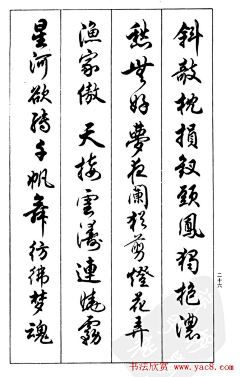 斜欹枕損釵頭鳳獨抱濃
愁無好夢夜闌猶剪燈花弄
漁家傲 天接雲濤連曉霧
星河欲轉千帆舞彷彿梦魂
二十六
书法欣赏 www.yac8.com